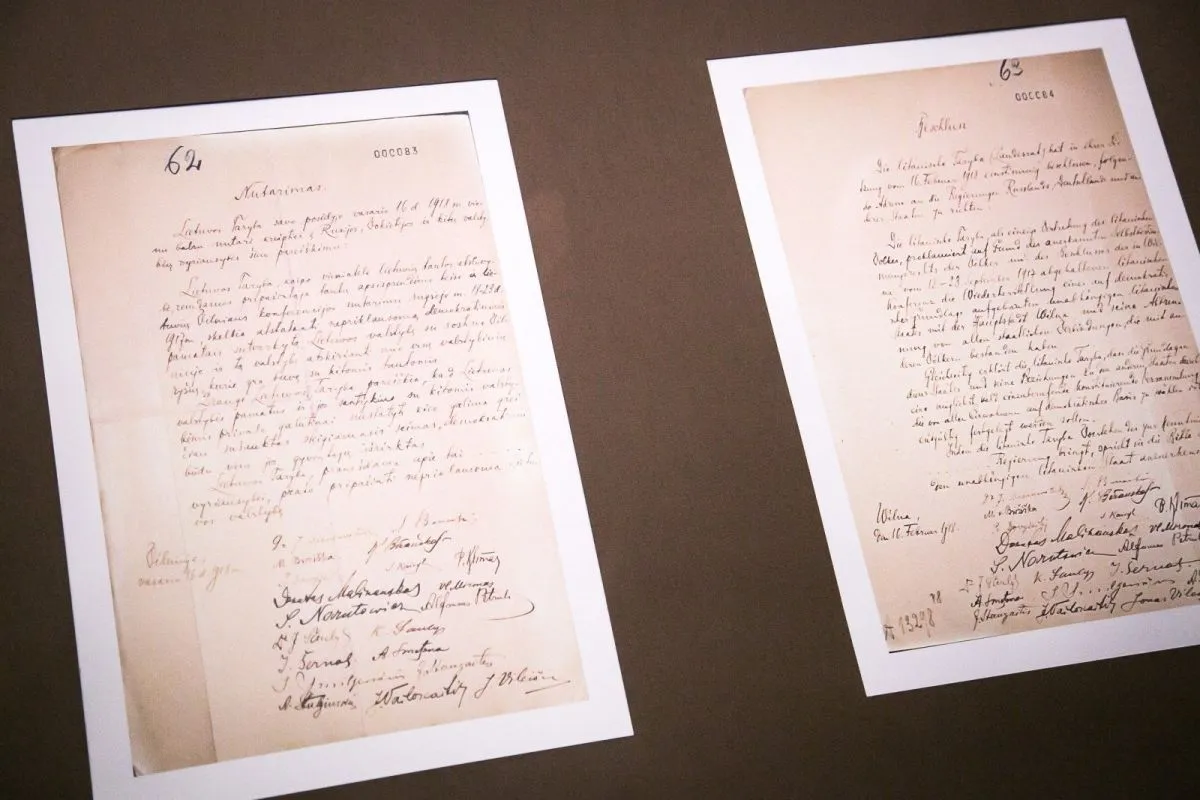 62
000083
Nutarimas.
Lietuvos Taryba savo posėdyje vasario 16 d. 1918 m. vie-
nu balsu nutarė kreiptis į Rusijos, Vokietijos ir kitų valsty-
bių vyriausybes šiuo pareiškimu:
Lietuvos Taryba, kaipo vienintelė lietuvių tautos atstovy-
bė, remdamos pripažintąja tautų apsisprendimo teise ir lie-
tuvių Vilniaus konferencijos nutarimu rugsėjo m. 18-23 d.
1917 m., skelbia atstatanti nepriklausomą demokratiniais
pamatais sutvarkytą Lietuvos valstybę su sostine Vil-
niuje ir tą valstybę atskirianti nuo visų valstybinių
ryšių, kurie yra buvę su kitomis tautomis.
Drauge Lietuvos Taryba pareiškia, kad Lietuvos
valstybės pamatus ir jos santykius su kitomis valsty-
bėmis privalo galutinai nustatyti kiek galima grei-
čiau sušauktas steigiamasis seimas, demokratiniu
būdu visų jos gyventojų išrinktas.
Lietuvos Taryba, pranešdama apie tai
vyriausybei, prašo pripažinti nepriklausomą Lietu-
vos valstybę.
Vilniuje,
vasario 16 d. 1918 m.
Dr. J. S. Banaitis
M. Biržiška K. Bizauskas
P. Klimas
Donatas Malinauskas Vl. Mironas
S. Narutowicz Alfonsas Petrulis
Dr. J. Šaulys K. Šaulys
J. Šernas A. Smetona
J. Smilgevičius J. Staugaitis
A. Stulginskis J. Vailokaitis J. Vileišis
63
000084
Beschluss
Die litauische Taryba (Landesrat) hat in ihrer Si-
tzung vom 16. Februar 1918 einstimmig beschlossen, folgen-
de Adresse an die Regierungen Russlands, Deutschlands und an-
derer Staaten zu richten:
Die litauische Taryba, als einzige Vertretung des litauischen
Volkes, proklamiert auf Grund des anerkannten Selbstbestim-
mungsrechts der Völker und des Beschlusses der in Wil-
na vom 18-23. September 1917 abgehaltenen litauischen
Konferenz die Wiederherstellung eines auf demokrati-
scher Grundlage aufgebauten unabhängigen litauischen
Staates mit der Hauptstadt Wilna und seine Abtren-
nung von allen staatlichen Verbindungen, die mit an-
deren Völkern bestanden haben.
Gleichzeitig erklärt die litauische Taryba, dass die Grundlagen
dieses Staates und seine Beziehungen zu den anderen Staaten durch
eine möglichst bald einzuberufende konstituierende Versammlung,
die von allen Einwohnern auf demokratischer Basis zu wählen ist,
endgültig festgelegt werden sollen.
Indem die litauische Taryba Vorstehendes zur Kenntnis
Regierung bringt, spricht sie die Bitte
den unabhängigen litauischen Staat anzuerkennen
Wilna,
den 16. Februar 1918.
M. Biržiška K. Bizauskas
P. Klimas
Donatas Malinauskas Vl. Mironas
S. Narutowicz Alfonsas Petrulis
Dr. J. Šaulys K. Šaulys J. Šernas
A. Smetona J. Smilgevičius
J. Staugaitis J. Vailokaitis Jonas Vileišis
A 13298